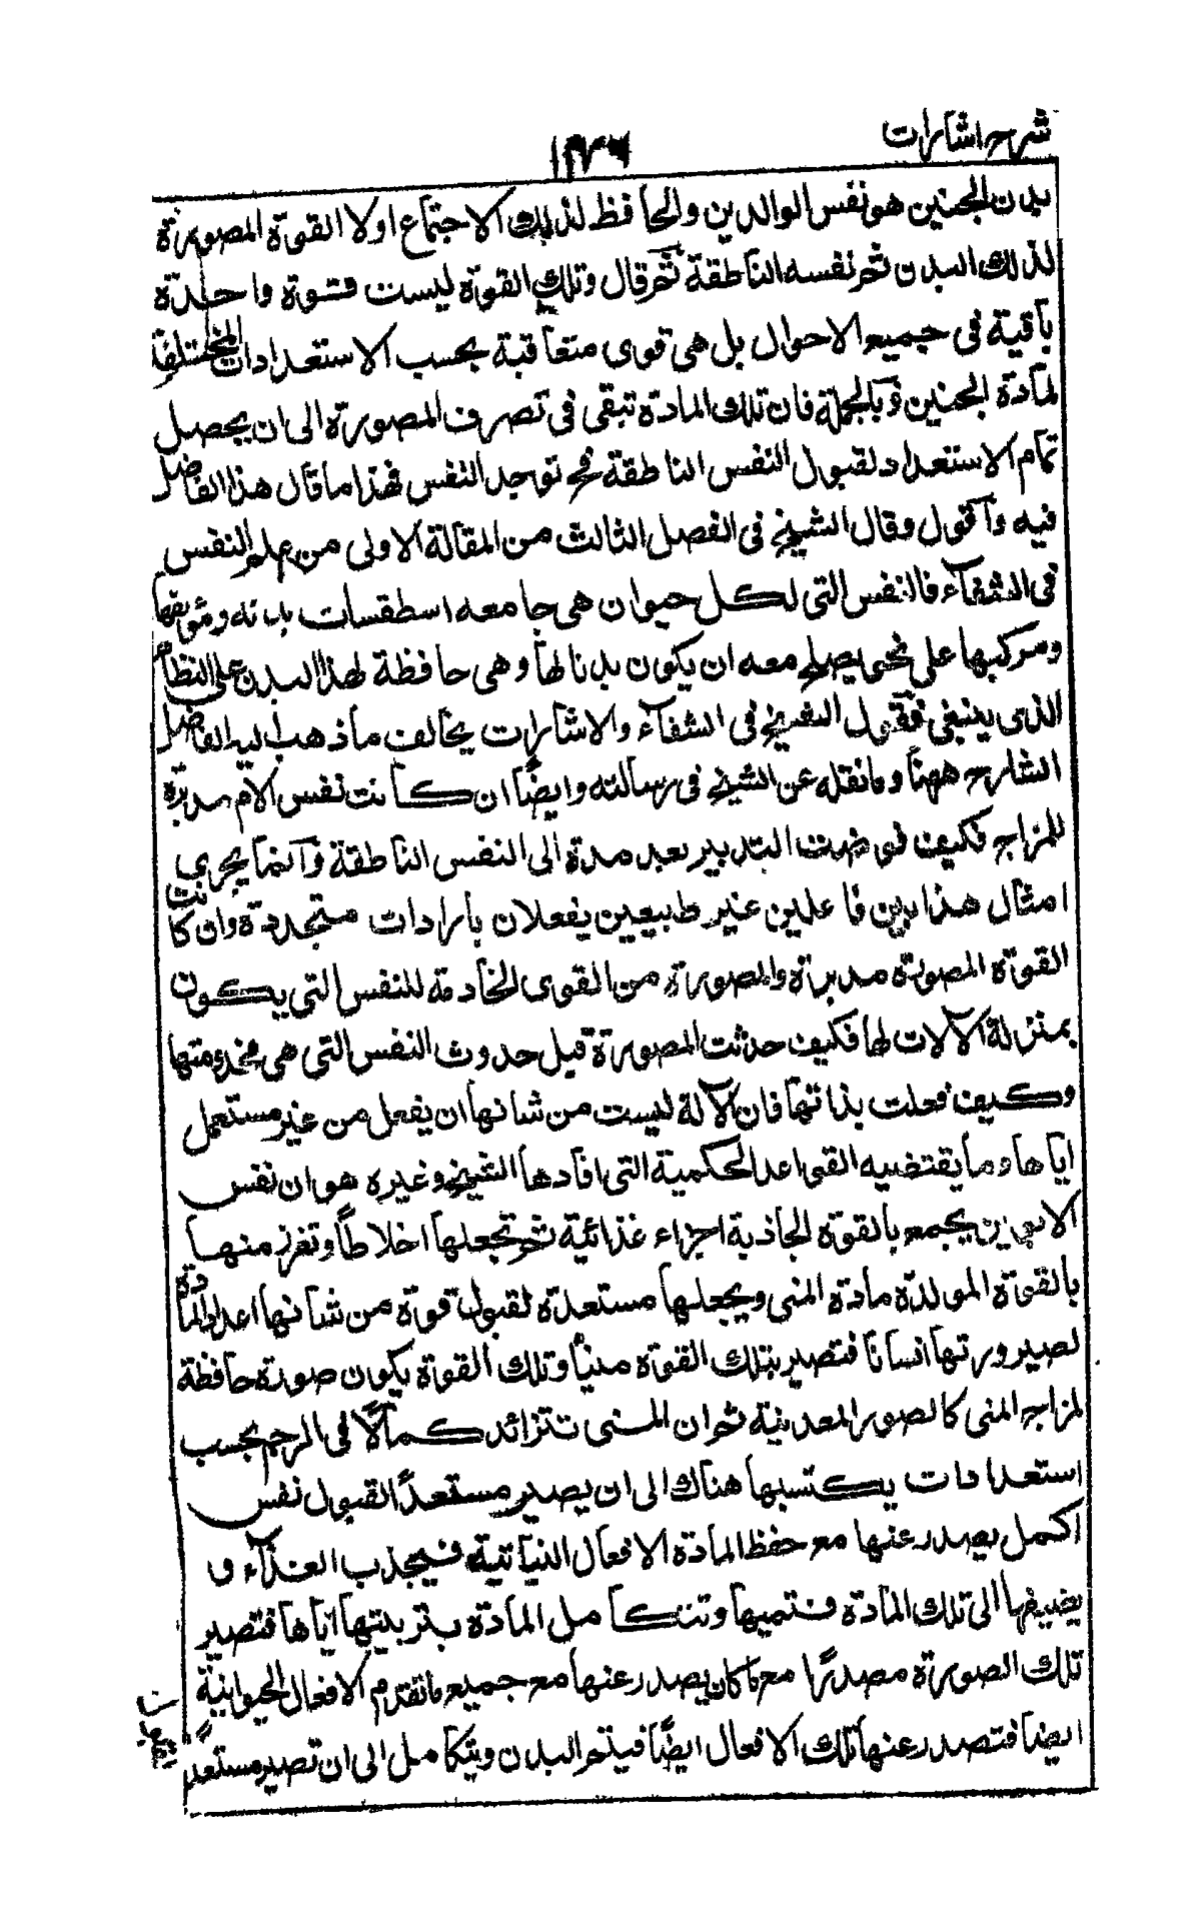 شرح اشارات
١٣٤٦
بدن الجنين هو نفس الوالدين والحافظ لذلك الاجتماع اولا القوة المصورة
لذلك البدن ثم نفسه الناطقة ثم قال وتلك القوة ليست قوة واحدة
باقية فى جميع الاحوال بل هى قوى متعاقبة بحسب الاستعدادات المختلفة
لمادة الجنين وبالجملة فان تلك المادة تبقى فى تصرف المصورة الى ان يحصل
تمام الاستعداد لقبول النفس الناطقة فح توجد النفس فهذا ما قال هذا الفاضل
فيه واقول وقال الشيخ فى الفصل الثالث من المقالة الاولى من علم النفس
فى الشفاء فالنفس التى لكل حيوان هى جامعه اسطقسات بدنه ومؤلفها
ومركبها على نحو يصلح معه ان يكون بدنا لها وهى حافظة لهذا البدن على النظام
الذى ينبغى فقول الشيخ فى الشفاء والاشارات يخالف ما ذهب اليه الفاضل
الشارح ههنا وما نقله عن الشيخ فى رسالته وايضا ان كانت نفس الام مدبرة
للمزاج فكيف فوضت التدبير بعد مدة الى النفس الناطقة وانما يجرى
امثال هذا بين فاعلين غير طبيعين يفعلان بارادات متجددة وان كانت
القوة المصورة مدبرة والمصورة من القوى الخادمة للنفس التى يكون
بمنزلة الآلات لها فكيف حدثت المصورة قبل حدوث النفس التى هى مخدومتها
وكيف فعلت بذاتها فان الآلة ليست من شانها ان يفعل من غير مستعمل
اياها وما يقتضيه القواعد الحكمية التى افادها الشيخ وغيره هو ان نفس
الابوين يجمع بالقوة الجاذبة اجزاء غذائية ثم تجعلها اخلاطا وتفرز منها
بالقوة المولدة مادة المنى ويجعلها مستعدة لقبول قوة من شانها اعداد المادة
لصيرورتها انسانا فتصير بتلك القوة منيا وتلك القوة يكون صورة حافظة
لمزاج المنى كالصور المعدنية ثم ان المنى تتزائد كمالا فى الرحم بحسب
استعدادات يكتسبها هناك الى ان يصير مستعدا لقبول نفس
اكمل يصدر عنها مع حفظ المادة الافعال النباتية فيجذب الغذاء و
يضيفها الى تلك المادة فتنميها وتتكامل المادة بتربيتها اياها فتصير
تلك الصورة مصدرا مع ما كان يصدر عنها مع جميع ما تقدم الافعال الحيوانية
ايضا فتصدر عنها تلك الافعال ايضا فيتم البدن ويتكامل الى ان تصير مستعدا